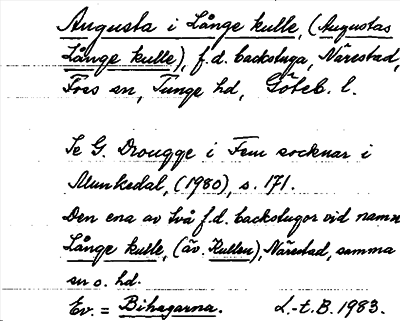 Augusta i Långe kulle, (Augustas
Långe kulle), f.d. backstuga, Närestad,
Foss sn, Tunge hd, Göteb. l.
Se G. Drougge i Fem socknar i
Munkedal, (1980), s. 171.
Den ena av två f.d. backstugor vid namn
Långe kulle, (äv. Kullen), Närestad, samma
sn o. hd.
Ev. = Bihagarna. L.-t. B. 1983.